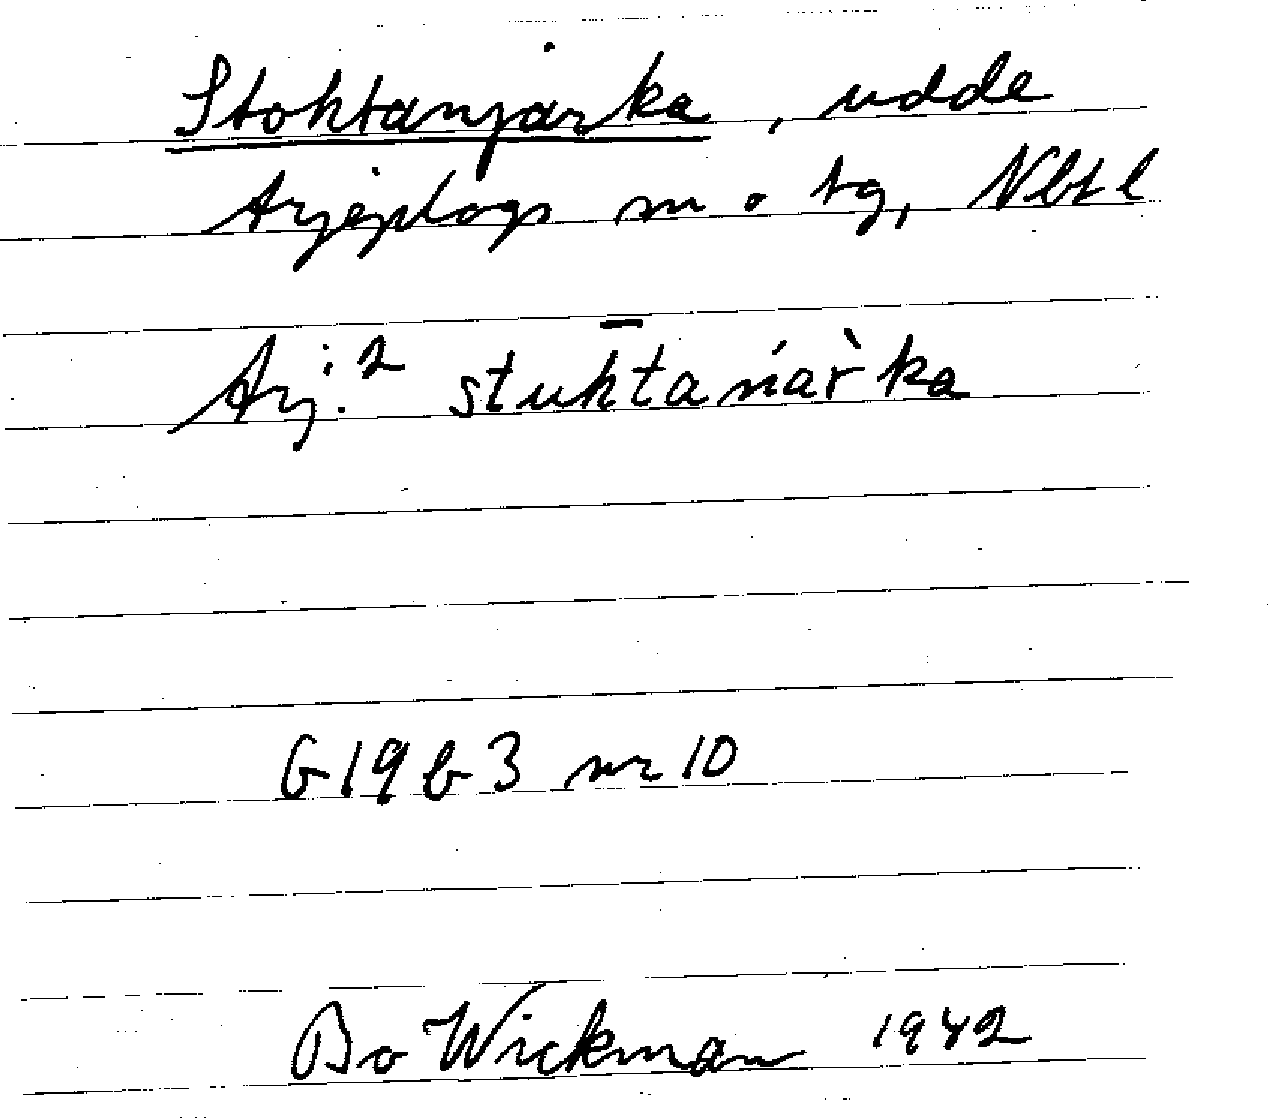 Stohtanjarka, udde
Arjeplogs sn o tg, Nbtl
Arj.:2 stuh̄tańar̀ka
G19b3 nr 10
Bo Wickman 1942